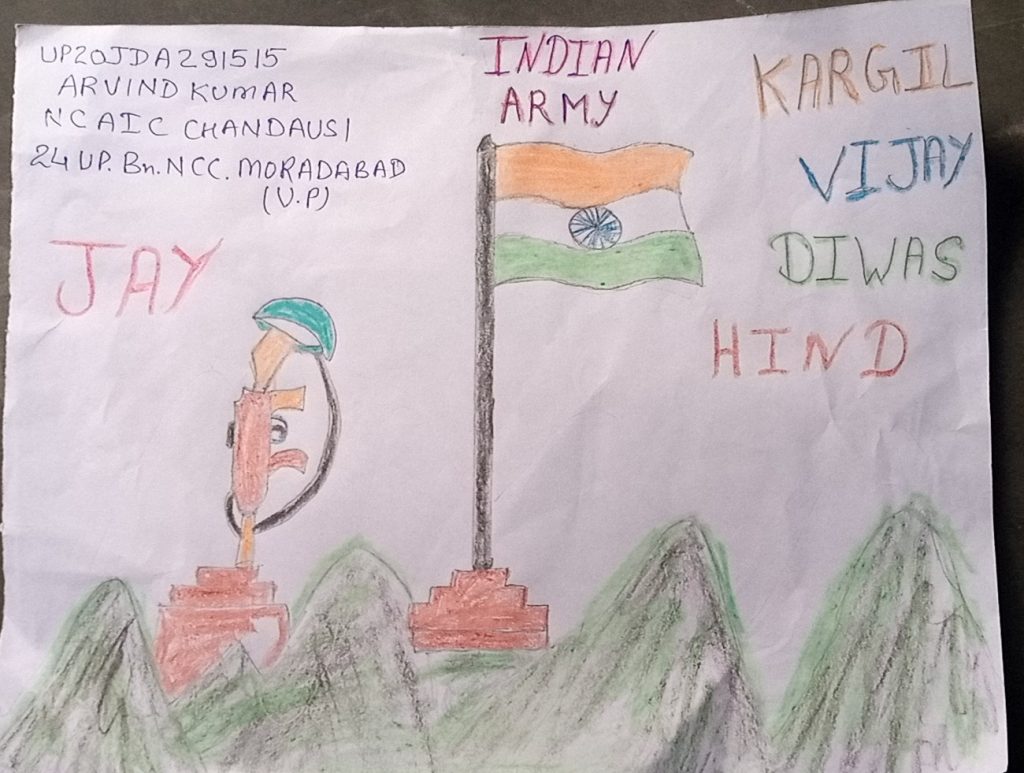 UP20JDA291515
ARVIND KUMAR
NCAIC CHANDAUSI
24 UP. Bn. NCC. MORADABAD
(U.P)
INDIAN
ARMY
KARGIL
VIJAY
DIWAS
JAY
HIND